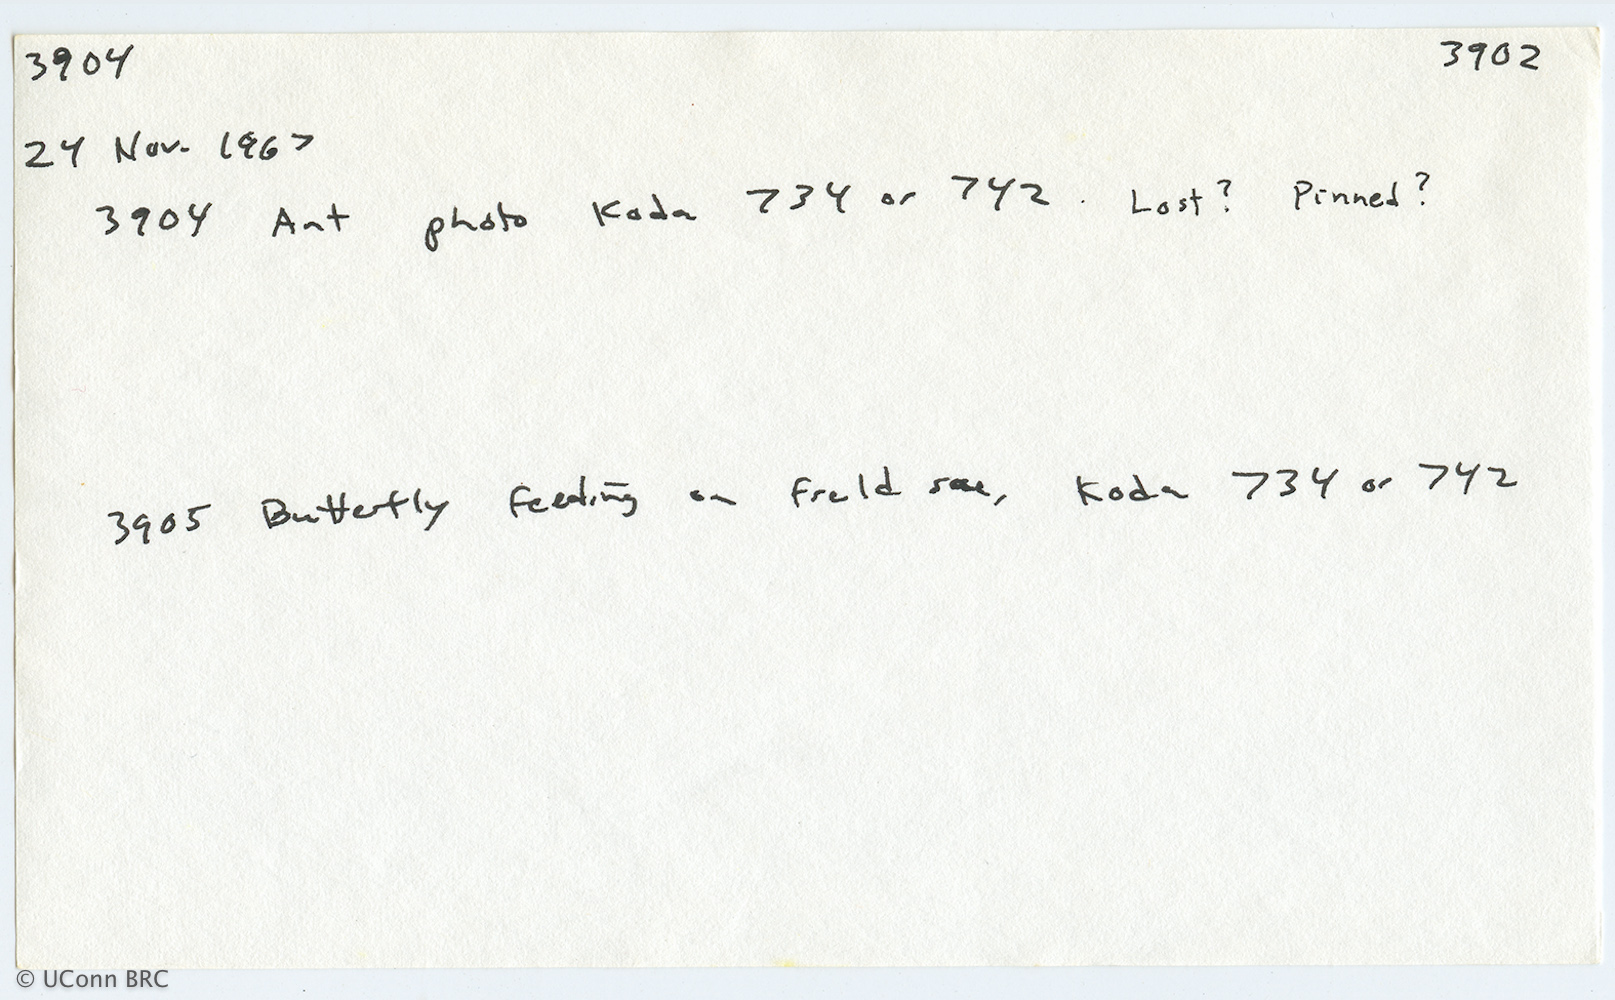 3904 3902
24 Nov. 1967
3904 Ant photo Koda 734 or 742. Lost? Pinned?
3905 Butterfly feeding on field Koda 734 or 742
© UConn BRC